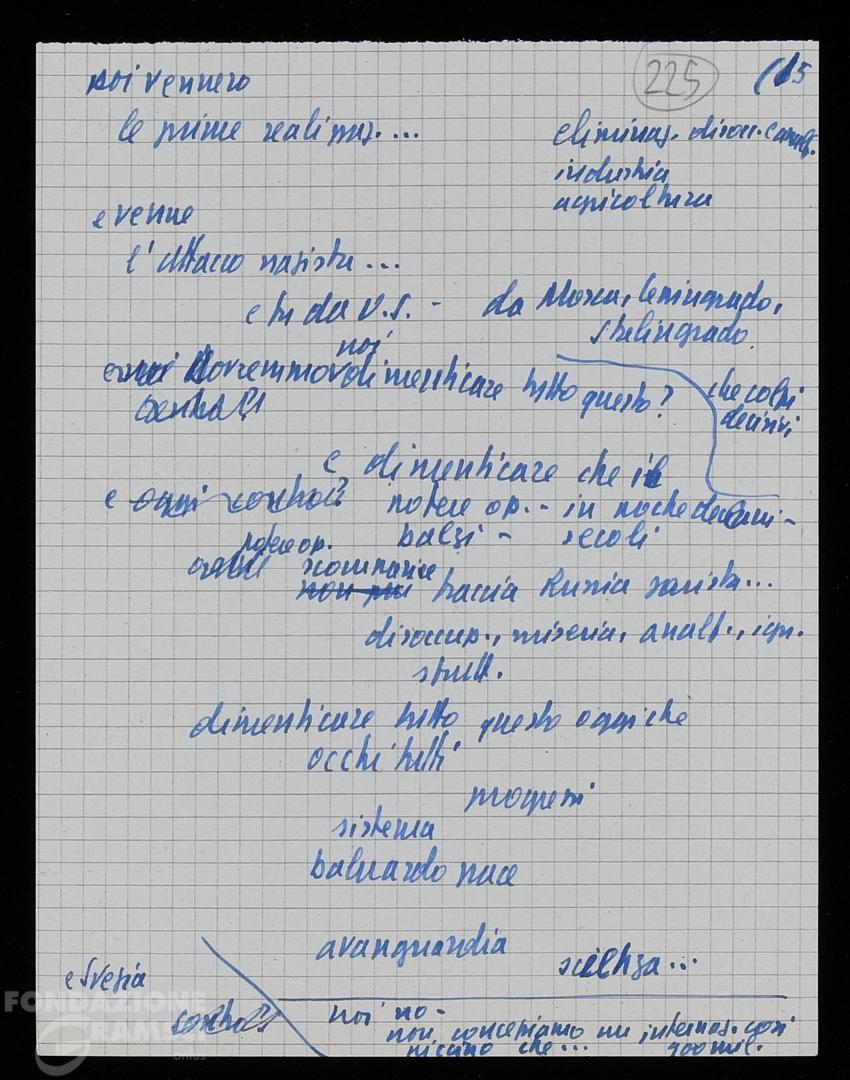 225 (15
poi vennero
le prime realizzaz. ...
eliminaz. disocc. analf.
industria
agricoltura
e venne
l'attacco nazista ...
e fu da U.S. - da Mosca, Leningrado,
Stalingrado.
noi
dovremmo dimenticare tutto questo?
che colpi
decisivi
e dimenticare che il
e oggi potere op. - in poche decenni -
balzi - secoli
potere op.
scomparire
non più traccia Russia zarista...
disoccup., miseria, analf., ign.
sfrutt.
dimenticare tutto questo oggi che
occhi tutti
progressi
sistema
baluardo pace
avanguardia
scienza...
e Svezia
noi no -
non concepiamo un internaz. così
piccino che ... 900 mil.
FONDAZIONE
GRAMSCI
onlus